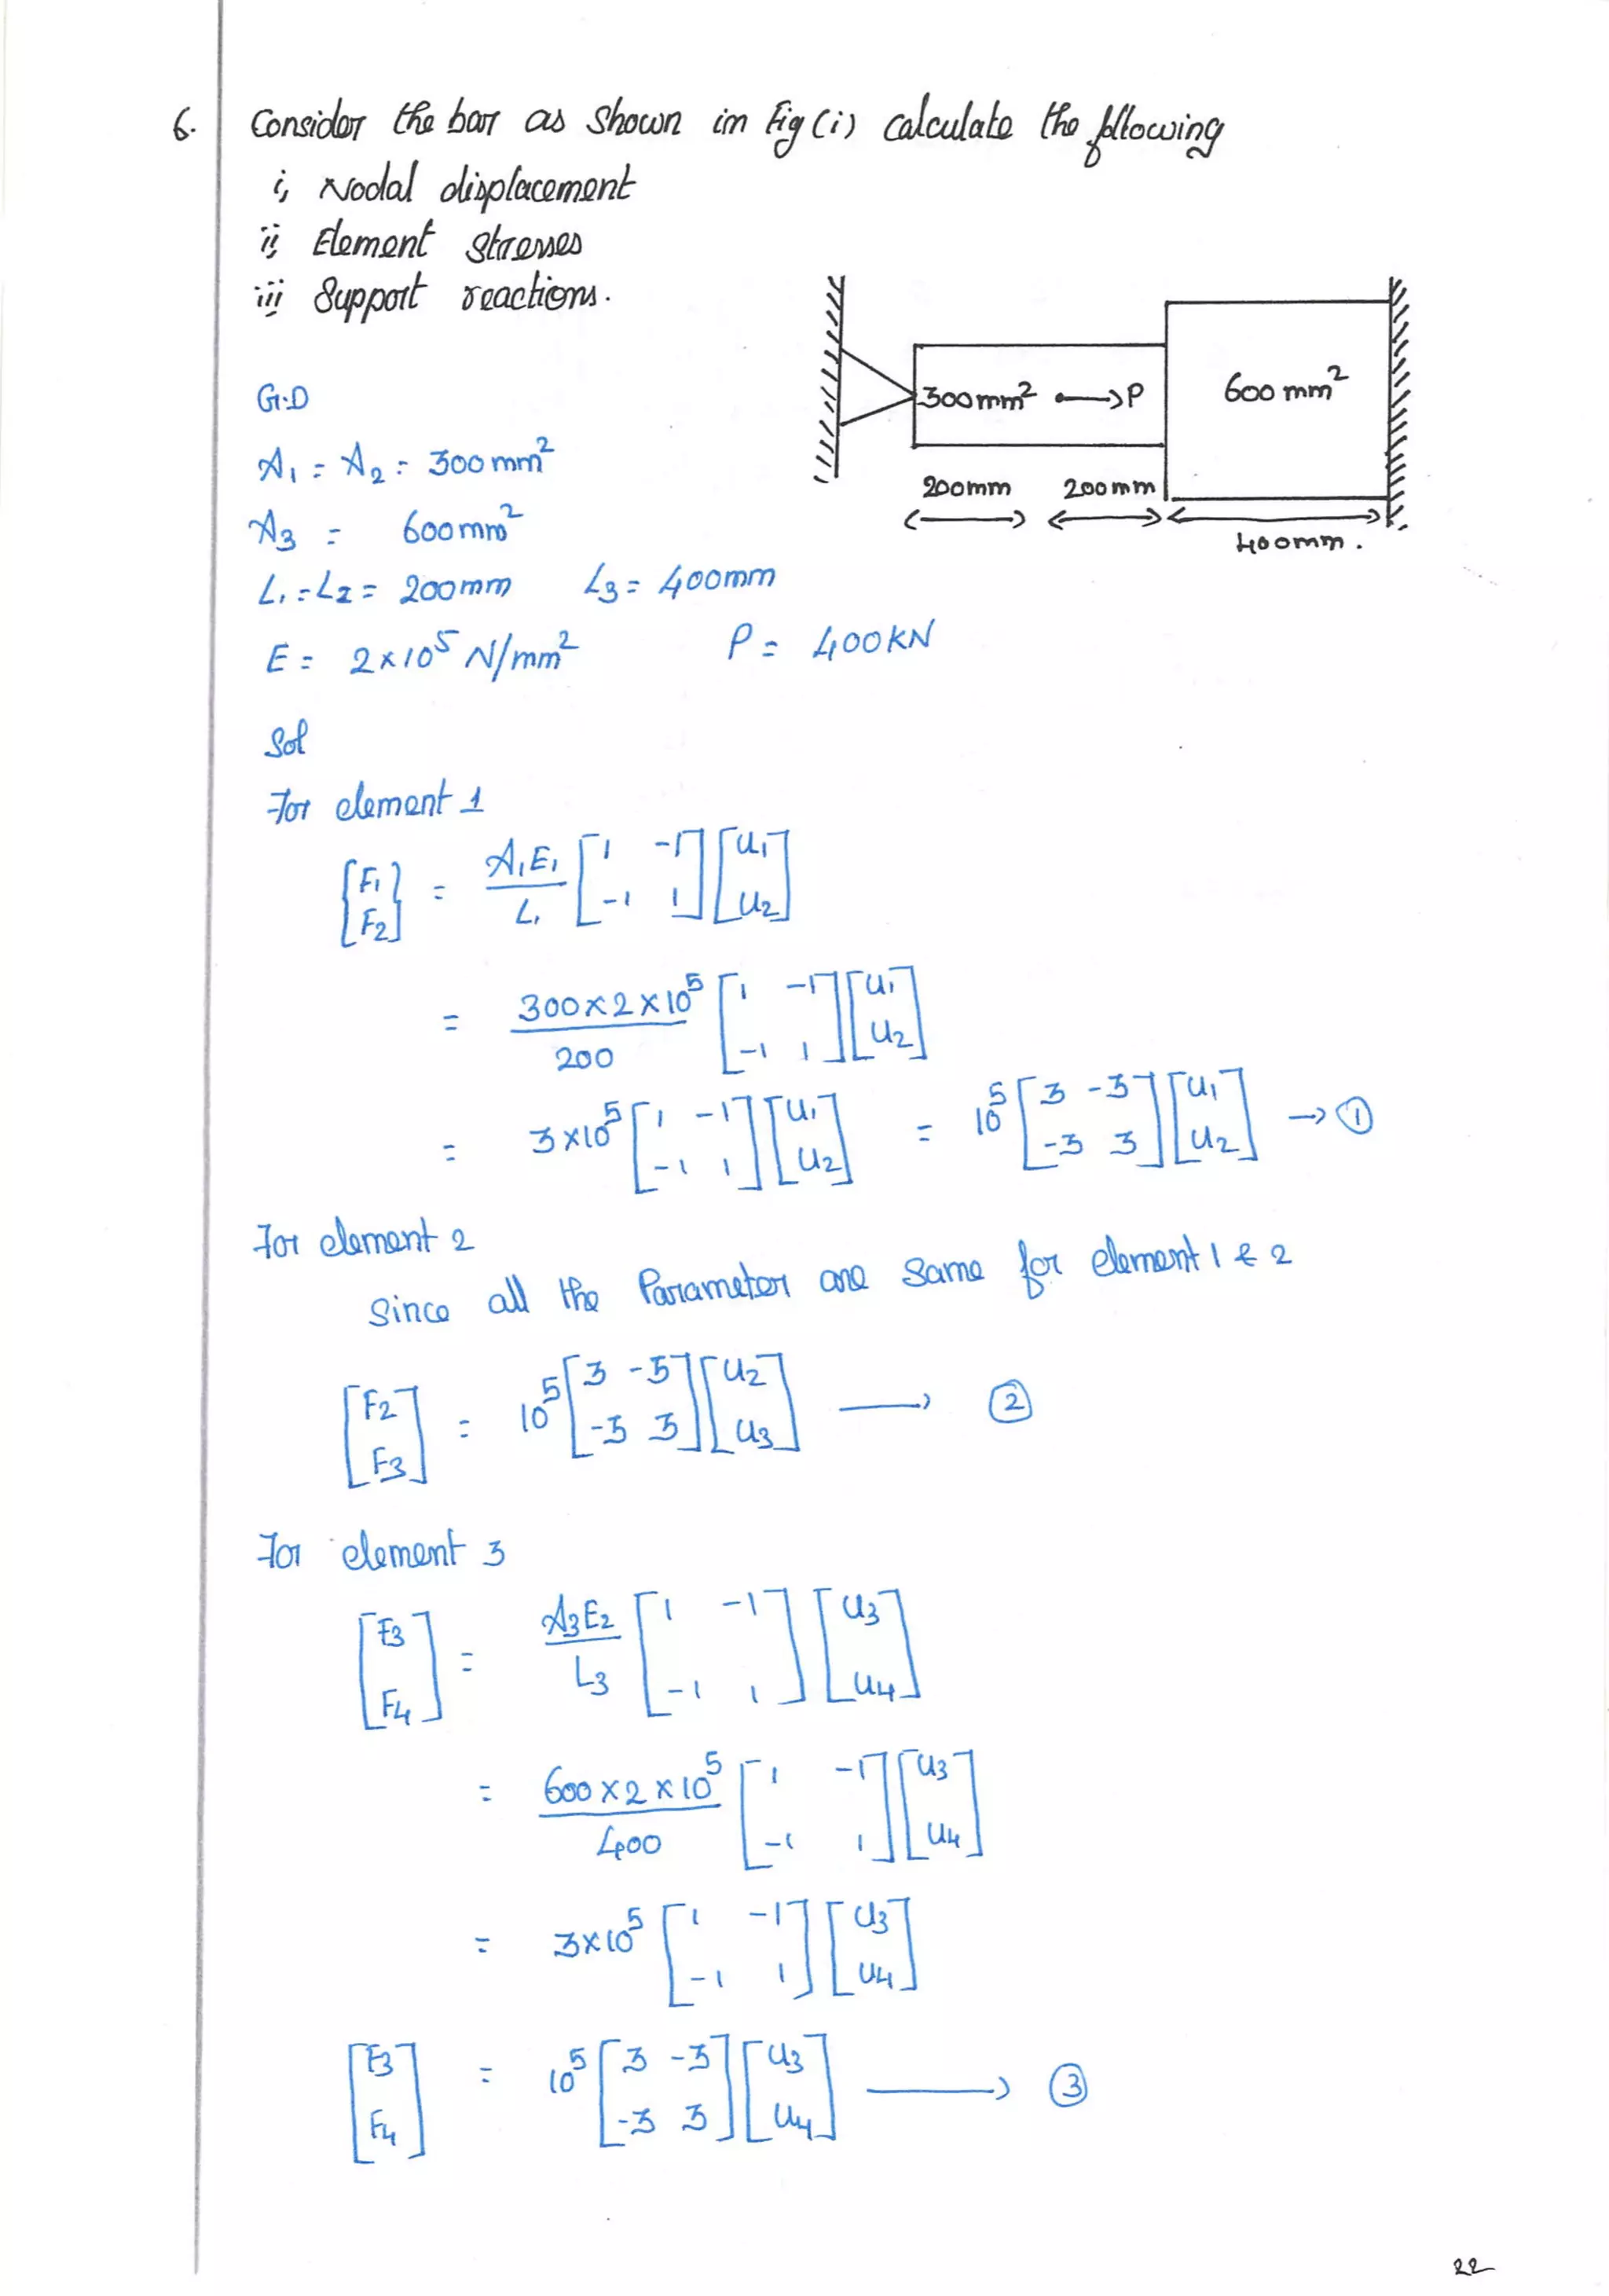 6. Consider the bar as shown in Fig (i) calculate the following
i, Nodal displacement
ii, Element stresses
iii, Support reactions.
300mm² •→P 600 mm²
200mm 200mm
400mm.
G.D
A₁ = A₂ = 300 mm²
A₃ = 600 mm²
L₁ = L₂ = 200 mm L₃ = 400mm
E = 2×10⁵ N/mm² P = 400 KN
Sol
For element 1
{F₁ F₂} = A₁E₁/L₁ [1 -1 -1 1] [u₁ u₂]
= 300×2×10⁵/200 [1 -1 -1 1] [u₁ u₂]
= 3×10⁵ [1 -1 -1 1] [u₁ u₂] = 10⁵ [3 -3 -3 3] [u₁ u₂] → ①
For element 2
Since all the Parameter are same for element 1 & 2
[F₂ F₃] = 10⁵ [3 -3 -3 3] [u₂ u₃] → ②
For element 3
[F₃ F₄] = A₃E₂/L₃ [1 -1 -1 1] [u₃ u₄]
= 600×2×10⁵/400 [1 -1 -1 1] [u₃ u₄]
= 3×10⁵ [1 -1 -1 1] [u₃ u₄]
[F₃ F₄] = 10⁵ [3 -3 -3 3] [u₃ u₄] → ③
22